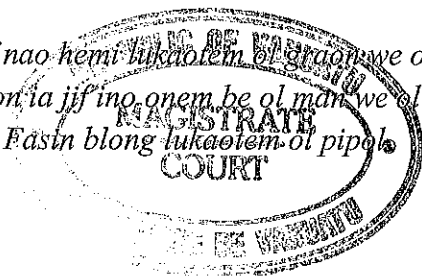 nao hemi lukaotem ol graon we o
on ia jif ino onem be ol man we ol
Fasin blong lukaotem ol pipol.
REPUBLIC OF VANUATU
MAGISTRATE
COURT
DE VANUATU